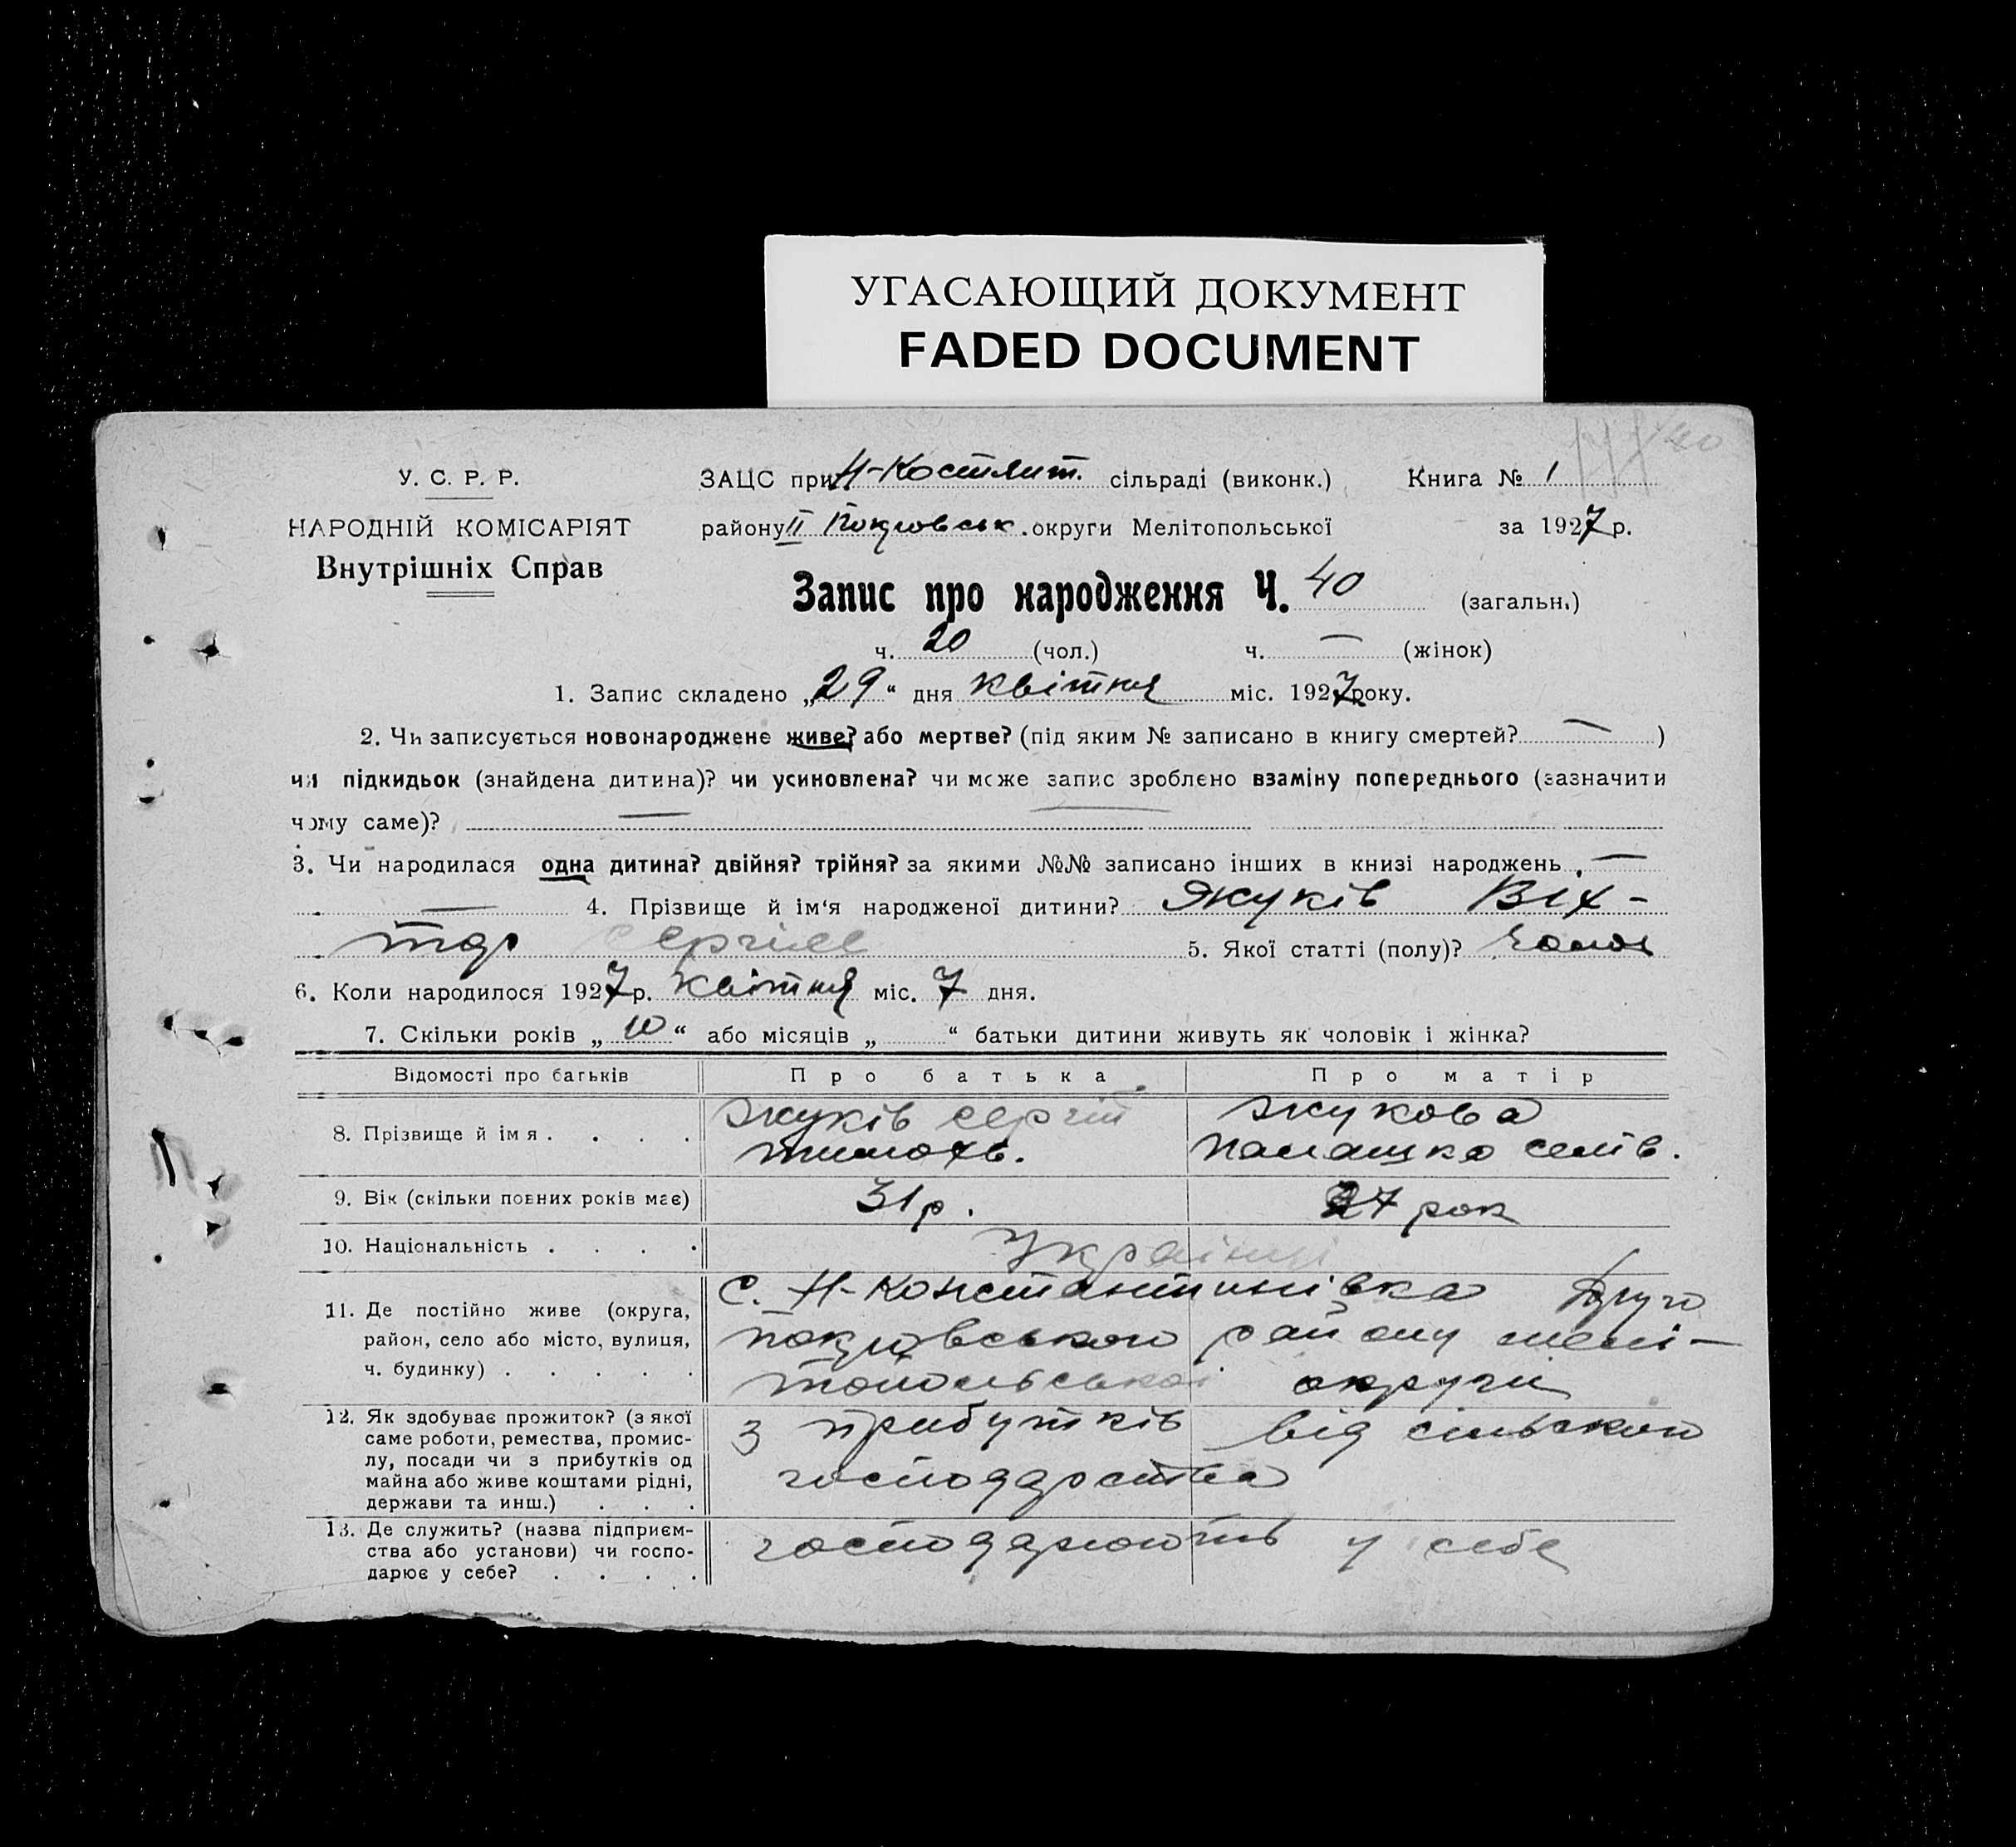 УГАСАЮЩИЙ ДОКУМЕНТ
FADED DOCUMENT
140
У. С. Р. Р.
НАРОДНІЙ КОМІСАРІЯТ
Внутрішніх Справ
ЗАЦС при Н-Костянт. сільраді (виконк.) Книга № 1
району II Покровськ. округи Мелітопольської за 1927 р.
Запис про народження Ч. 40 (загальн.)
ч. 20 (чол.) ч. — (жінок)
1. Запис складено „29“ дня квітня міс. 1927 року.
2. Чи записується новонароджене живе? або мертве? (під яким № записано в книгу смертей? — )
чи підкидьок (знайдена дитина)? чи усиновлена? чи може запис зроблено взаміну попереднього (зазначити
чому саме)? —
3. Чи народилася одна дитина? двійня? трійня? за якими №№ записано інших в книзі народжень . —
— 4. Прізвище й ім‘я народженої дитини? Жуків Вік-
тор Сергієв 5. Якої статті (полу)? чолов
6. Коли народилося 1927 р. квітня міс. 7 дня.
7. Скільки років „10“ або місяців „ “ батьки дитини живуть як чоловік і жінка?
Відомості про батьків Про батька Про матір
8. Прізвище й імя . . . . Жуків Сергій Жукова
Тимохв. Палашка Семів.
9. Вік (скільки повних років має) 31 р. 27 рок
10. Національність . . . . Українці
11. Де постійно живе (округа, район, село або місто, вулиця, ч. будинку) . . . . . с. Н-Константинівка Друго
покровського району мелі-
топольської округи
12. Як здобуває прожиток? (з якої саме роботи, ремества, промислу, посади чи з прибутків од майна або живе коштами рідні, держави та инш.) . . . З прибутків від сільского
господарства
13. Де служить? (назва підприємства або установи) чи господарює у себе? . . . . господарюють у себе